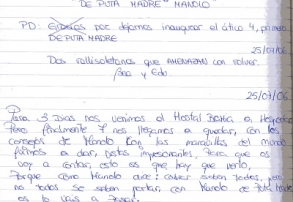 DE PUTA MADRE MANOLO
PD: Gracias por dejarnos inaugurar el ático 4, primo
DE PUTA MADRE
25/07/06
Dos vallisoletanas que AMENAZAN con volver.
Bea y Edo
25/07/06
Para 3 Dias nos venimos al Hostal Bahia, a
Pero finalmente 7 nos llegamos a quedar, con los
consejos de Manolo con las maravillas del mundo
fuimos a dar, pistas impresionantes. Para que os
voy a contar, esto es que hay que verlo,
Porque como Manolo dice: caber caben todos, pero
no todos se saben portar, con Manolo de Puta Madre
os lo vais a Pasar.